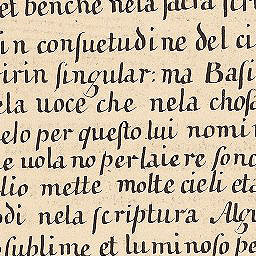 et benche nela sacra scri
in consuetudine del ci
irin singular: ma Basi
ela uoce che nela chosa
elo per questo lui nomi
e uolano per laiere sono
lio mette molte cieli eta
odi nela scriptura Algu
sublime et luminoso pe